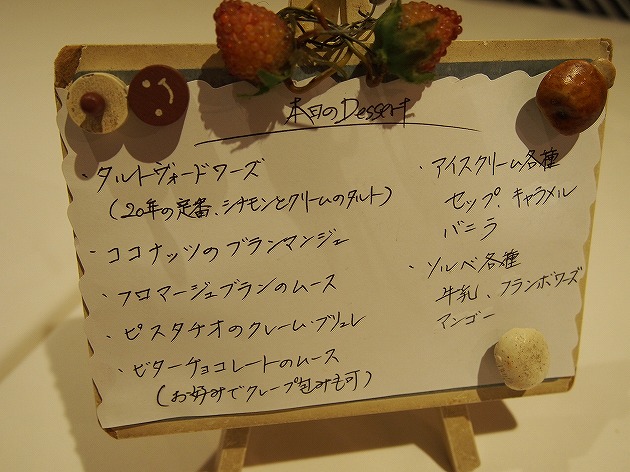 本日のDessert
・タルトヴォードワーズ
(20年の定番、シナモンとクリームのタルト)
・ココナッツのブランマンジェ
・フロマージュブランのムース
・ピスタチオのクレームブリュレ
・ビターチョコレートのムース
(お好みでクレープ包みも可)
・アイスクリーム各種
セップ、キャラメル
バニラ
・ソルベ各種
牛乳、フランボワーズ
マンゴー